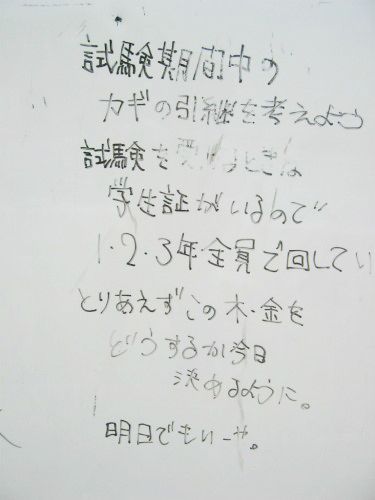 試験期間中の
カギの引継を考えよう
試験を受けるときは
学生証がいるので
1・2・3年全員で回してい
とりあえずこの木・金を
どうするか今日
決めるように。
明日でもいーや。